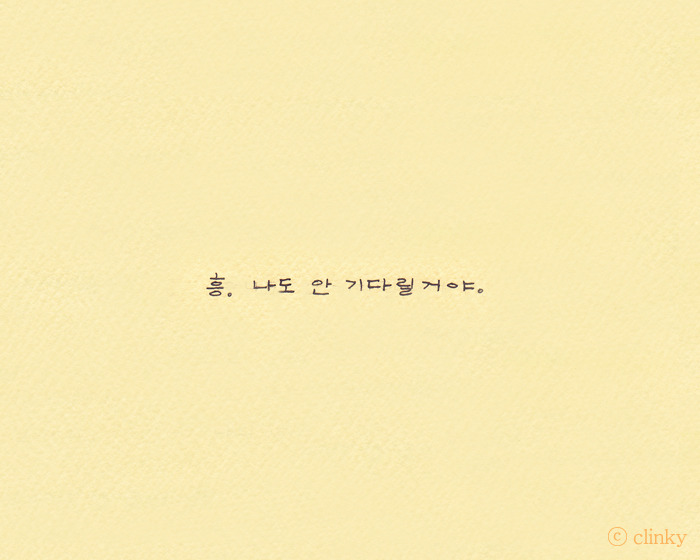 흥. 나도 안 기다릴거야.
ⓒ clinky